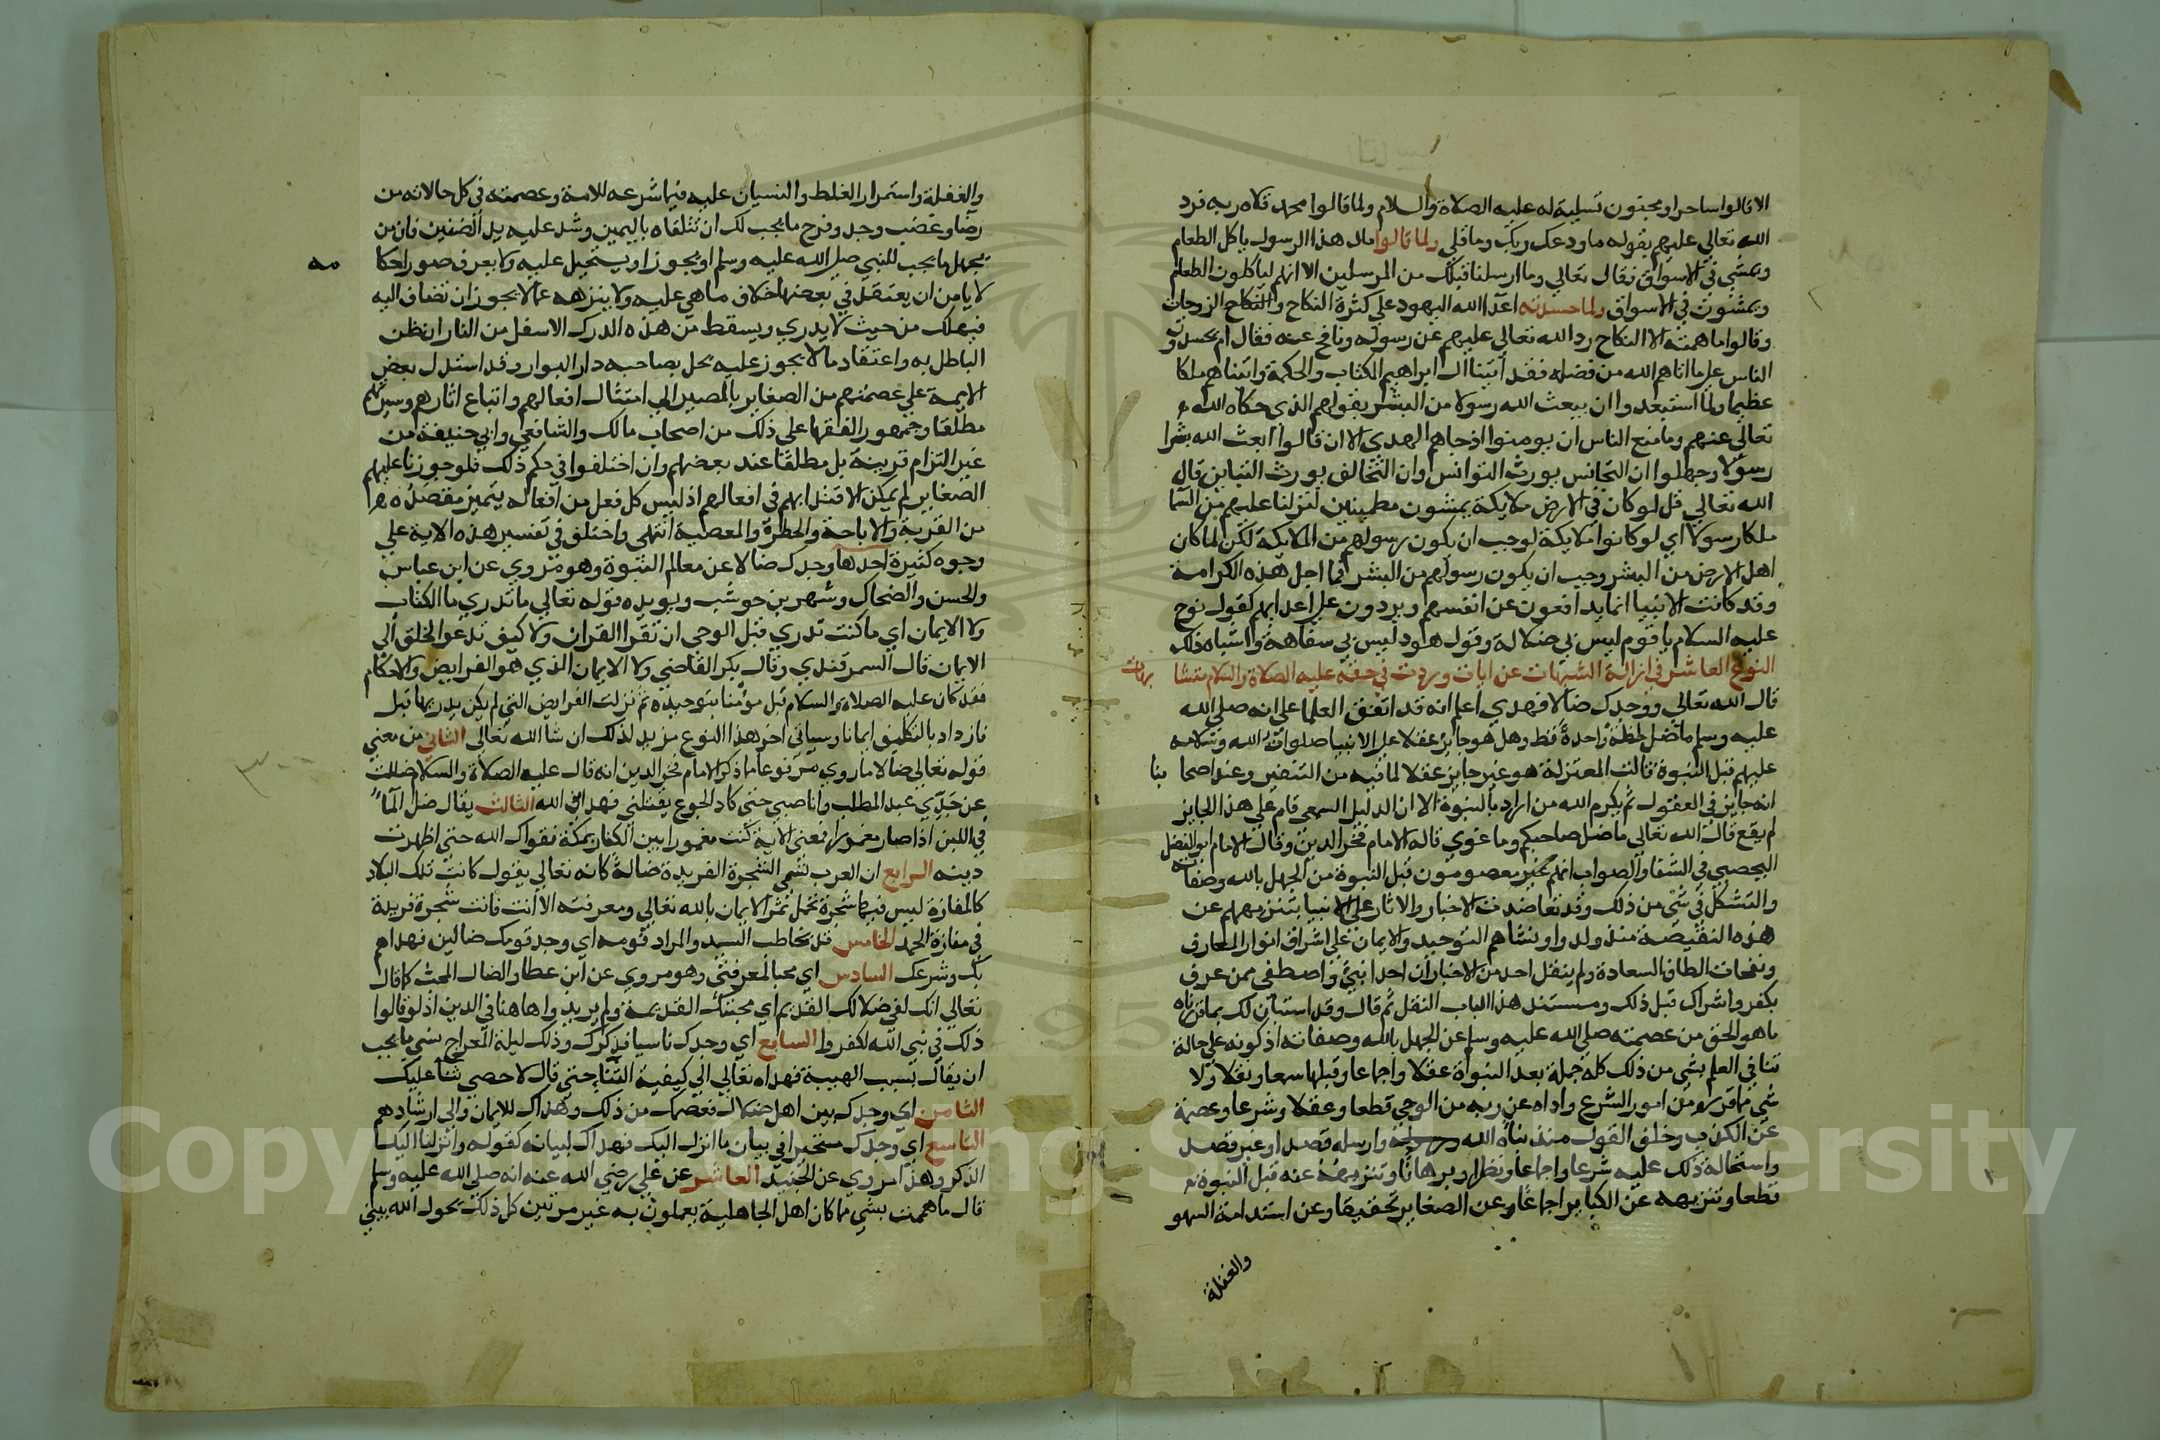 الا قالوا ساحر او مجنون تسلية له عليه الصلاة والسلام ولما قالوا محمد قلاه ربه فرد
الله تعالي عليهم بقوله ما ودعك ربك وما قلي ولما قالوا مال هذا الرسول ياكل الطعام
ويمشي في الاسواق فقال تعالي وما ارسلنا قبلك من المرسلين الا انهم لياكلون الطعام
ويمشون في الاسواق ولما حسدته اعدا الله اليهود علي كثرة النكاح والنكاح الزوجات
وقالوا ما همته الا النكاح رد الله تعالي عليهم عن رسوله ونافح عنه فقال ام يحسدون
الناس علي ما اتاهم الله من فضله فقد آتينا ال ابراهيم الكتاب والحكمة واتيناهم ملكا
عظيما ولما استبعدوا ان يبعث الله رسولا من البشر بقولهم الذي حكاه الله
تعالي عنهم وما منع الناس ان يومنوا اذ جاهم الهدي الا ان قالوا ابعث الله بشرا
رسولا وجهلوا ان التجانس يورث التوانس وان التخالف يورث التباين قال
الله تعالي قل لو كان في الارض ملايكة يمشون مطمينين لنزلنا عليهم من السما
ملكا رسولا اي لو كانوا ملايكة لوجب ان يكون رسولهم من الملايكة لكن لما كان
اهل الارض من البشر وجب ان يكون رسولهم من البشر فما اجل هذه الكرامة
وقد كانت الانبيا انما يدافعون عن انفسهم ويردون علي اعدايهم كقول نوح
عليه السلام يا قوم ليس بي ضلالة وقول هود ليس بي سفاهة واشباه ذلك
النوع العاشر في ازالة الشبهات عن ايات وردت في حقه عليه الصلاة والسلام متشا بهات
قال الله تعالي ووجدك ضالا فهدي اعلم انه قد اتفق العلما علي انه صلي الله
عليه وسلم ما ضل لحظة واحدة قط وهل هو جايز عقلا علي الانبيا صلوات الله وسلامه
عليهم قبل النبوة قالت المعتزلة هو غير جايز عقلا لما فيه من التنفير وعند اصحا بنا
انه جايز في العقول ثم يكرم الله من اراد بالنبوة الا ان الدليل السمعي قام علي هذا الجايز
لم يقع قال الله تعالي ما ضل صاحبكم وما غوي قاله الامام فخر الدين وقال الامام ابو الفضل
اليحصبي في الشفا والصواب انهم معصومون قبل النبوة من الجهل بالله وصفاته
والتشكك في شي من ذلك وقد تعاضدت الاخبار والاثار علي الانبيا بتنزيههم عن
هذه النقيصة منذ ولدوا ونشاهم التوحيد والايمان علي اشراق انوار المعارف
ونفحات الطاف السعادة ولم ينقل احد من الاخبار ان احدا نبيء واصطفي ممن عرف
بكفر واشراك قبل ذلك ومستند هذا الباب النقل ثم قال وقد استبان لك بما قررناه
ما هو الحق من عصمته صلي الله عليه وسلم عن الجهل بالله وصفاته اذ كونه علي حالة
تنافي العلم بشي من ذلك كله جملة بعد النبوة عقلا واجماعا وقبلها سمعا ونقلا ولا
شي مما قرره من امور الشرع واداه عن ربه من الوحي قطعا وعقلا وشرعا وعصمته
عن الكذب وخلف القول منذ نباه الله وارسله قصدا او غير قصد
واستحالة ذلك عليه شرعا واجماعا ونظرا وبرهانا وتنزيهه عنه قبل النبوة
قطعا وتنزيهه عن الكباير اجماعا وعن الصغاير تحقيقا وعن استدامة السهو
والغفلة
والغفلة واستمرار الغلط والنسيان عليه فيما شرعه للامة وعصمته في كل حالاته من
رضا وغضب وجد ومزح ما يجب لك ان تتلقاه باليمين وشد عليه يد الضنين فان من
يجهل ما يجب للنبي صلي الله عليه وسلم او يجوز او يستحيل عليه ولا يعرف صور احكا مه
لا يامن ان يعتقد في بعضها خلاف ما هي عليه ولا ينزهه عما لا يجوز ان تضاف اليه
فيهلك من حيث لا يدري ويسقط من هذه الدرك الاسفل من النار اذ ظن
الباطل به واعتقاد ما لا يجوز عليه يحل بصاحبه دار البوار وقد استدل بعض
الايمة علي عصمتهم من الصغاير بالمصير الي امتثال افعالهم واتباع اثارهم وسيرهم
مطلقا وجمهور الفقها علي ذلك من اصحاب مالك والشافعي وابي حنيفة من
غير التزام قرينة بل مطلقا عند بعضهم وان اختلفوا في حكم ذلك فلو جوزنا عليهم
الصغاير لم يمكن الاقتدا بهم في افعالهم اذ ليس كل فعل من افعاله يتميز مقصده
من القربة والاباحة والحظر والمعصية انتهي واختلف في تفسير هذه الاية علي
وجوه كثيرة احدها وجدك ضالا عن معالم النبوة وهو مروي عن ابن عباس
والحسن والضحاك وشهر بن حوشب ويويده قوله تعالي ما تدري ما الكتاب
ولا الايمان اي ما كنت تدري قبل الوحي ان تقرا القران ولا كيف تدعو الخلق الي
الايمان قال السمرقندي وقال بكر القاضي ولا الايمان الذي هو الفرايض والاحكام
فقد كان عليه الصلاة والسلام قبل مومنا بتوحيده ثم نزلت الفرايض التي لم يكن يدريها قبل
فازداد بالتكليف ايمانا وسياتي اخر هذا النوع مزيد لذلك ان شا الله تعالي الثاني من معني
قوله تعالي ضالا ما روي مرفوعا مما ذكر الامام فخر الدين انه قال عليه الصلاة والسلام ضللت
عن جدي عبد المطلب وانا صبي حتي كاد الجوع يقتلني فهداني الله الثالث يقال ضل الما
في اللبن اذا صار مغمورا فمعني الاية كنت مغمورا بين الكفار بمكة فقواك الله حتي اظهرت
دينه الرابع ان العرب تسمي الشجرة الفريدة ضالة كانه تعالي يقول كانت تلك البلاد
كالمفازة ليس فيها شجرة تحمل ثمر الايمان بالله تعالي ومعرفته الا انت فانت شجرة فريدة
في مفازة الجهد الخامس قد يخاطب السيد والمراد قومه اي وجد قومك ضالين فهداهم
بك وشرعك السادس اي محبا لمعرفتي وهو مروي عن ابن عطا والضال المحب كما قال
تعالي انك لفي ضلالك القديم اي محبتك القديمة ولم يريدوا هاهنا في الدين اذ لو قالوا
ذلك في نبي الله لكفروا السابع اي وجدك ناسيا فذكرك وذلك ليلة المعراج نسي ما يجب
ان يقال بسبب الهيبة فهداه تعالي الي كيفية الثناء حتي قال لا احصي ثنا عليك
الثامن اي وجدك بين اهل ضلال فعصمك من ذلك وهداك للايمان والي ارشادهم
التاسع اي وجدك متحيرا في بيان ما انزل اليك فهداك لبيانه كقوله وانزلنا اليك
الذكر وهذا مروي عن الجنيد العاشر عن علي رضي الله عنه انه صلي الله عليه وسلم
قال ما هممت بشي مما كان اهل الجاهلية يعملون به غير مرتين كل ذلك يحول الله بيني
Copyright © King Saud University